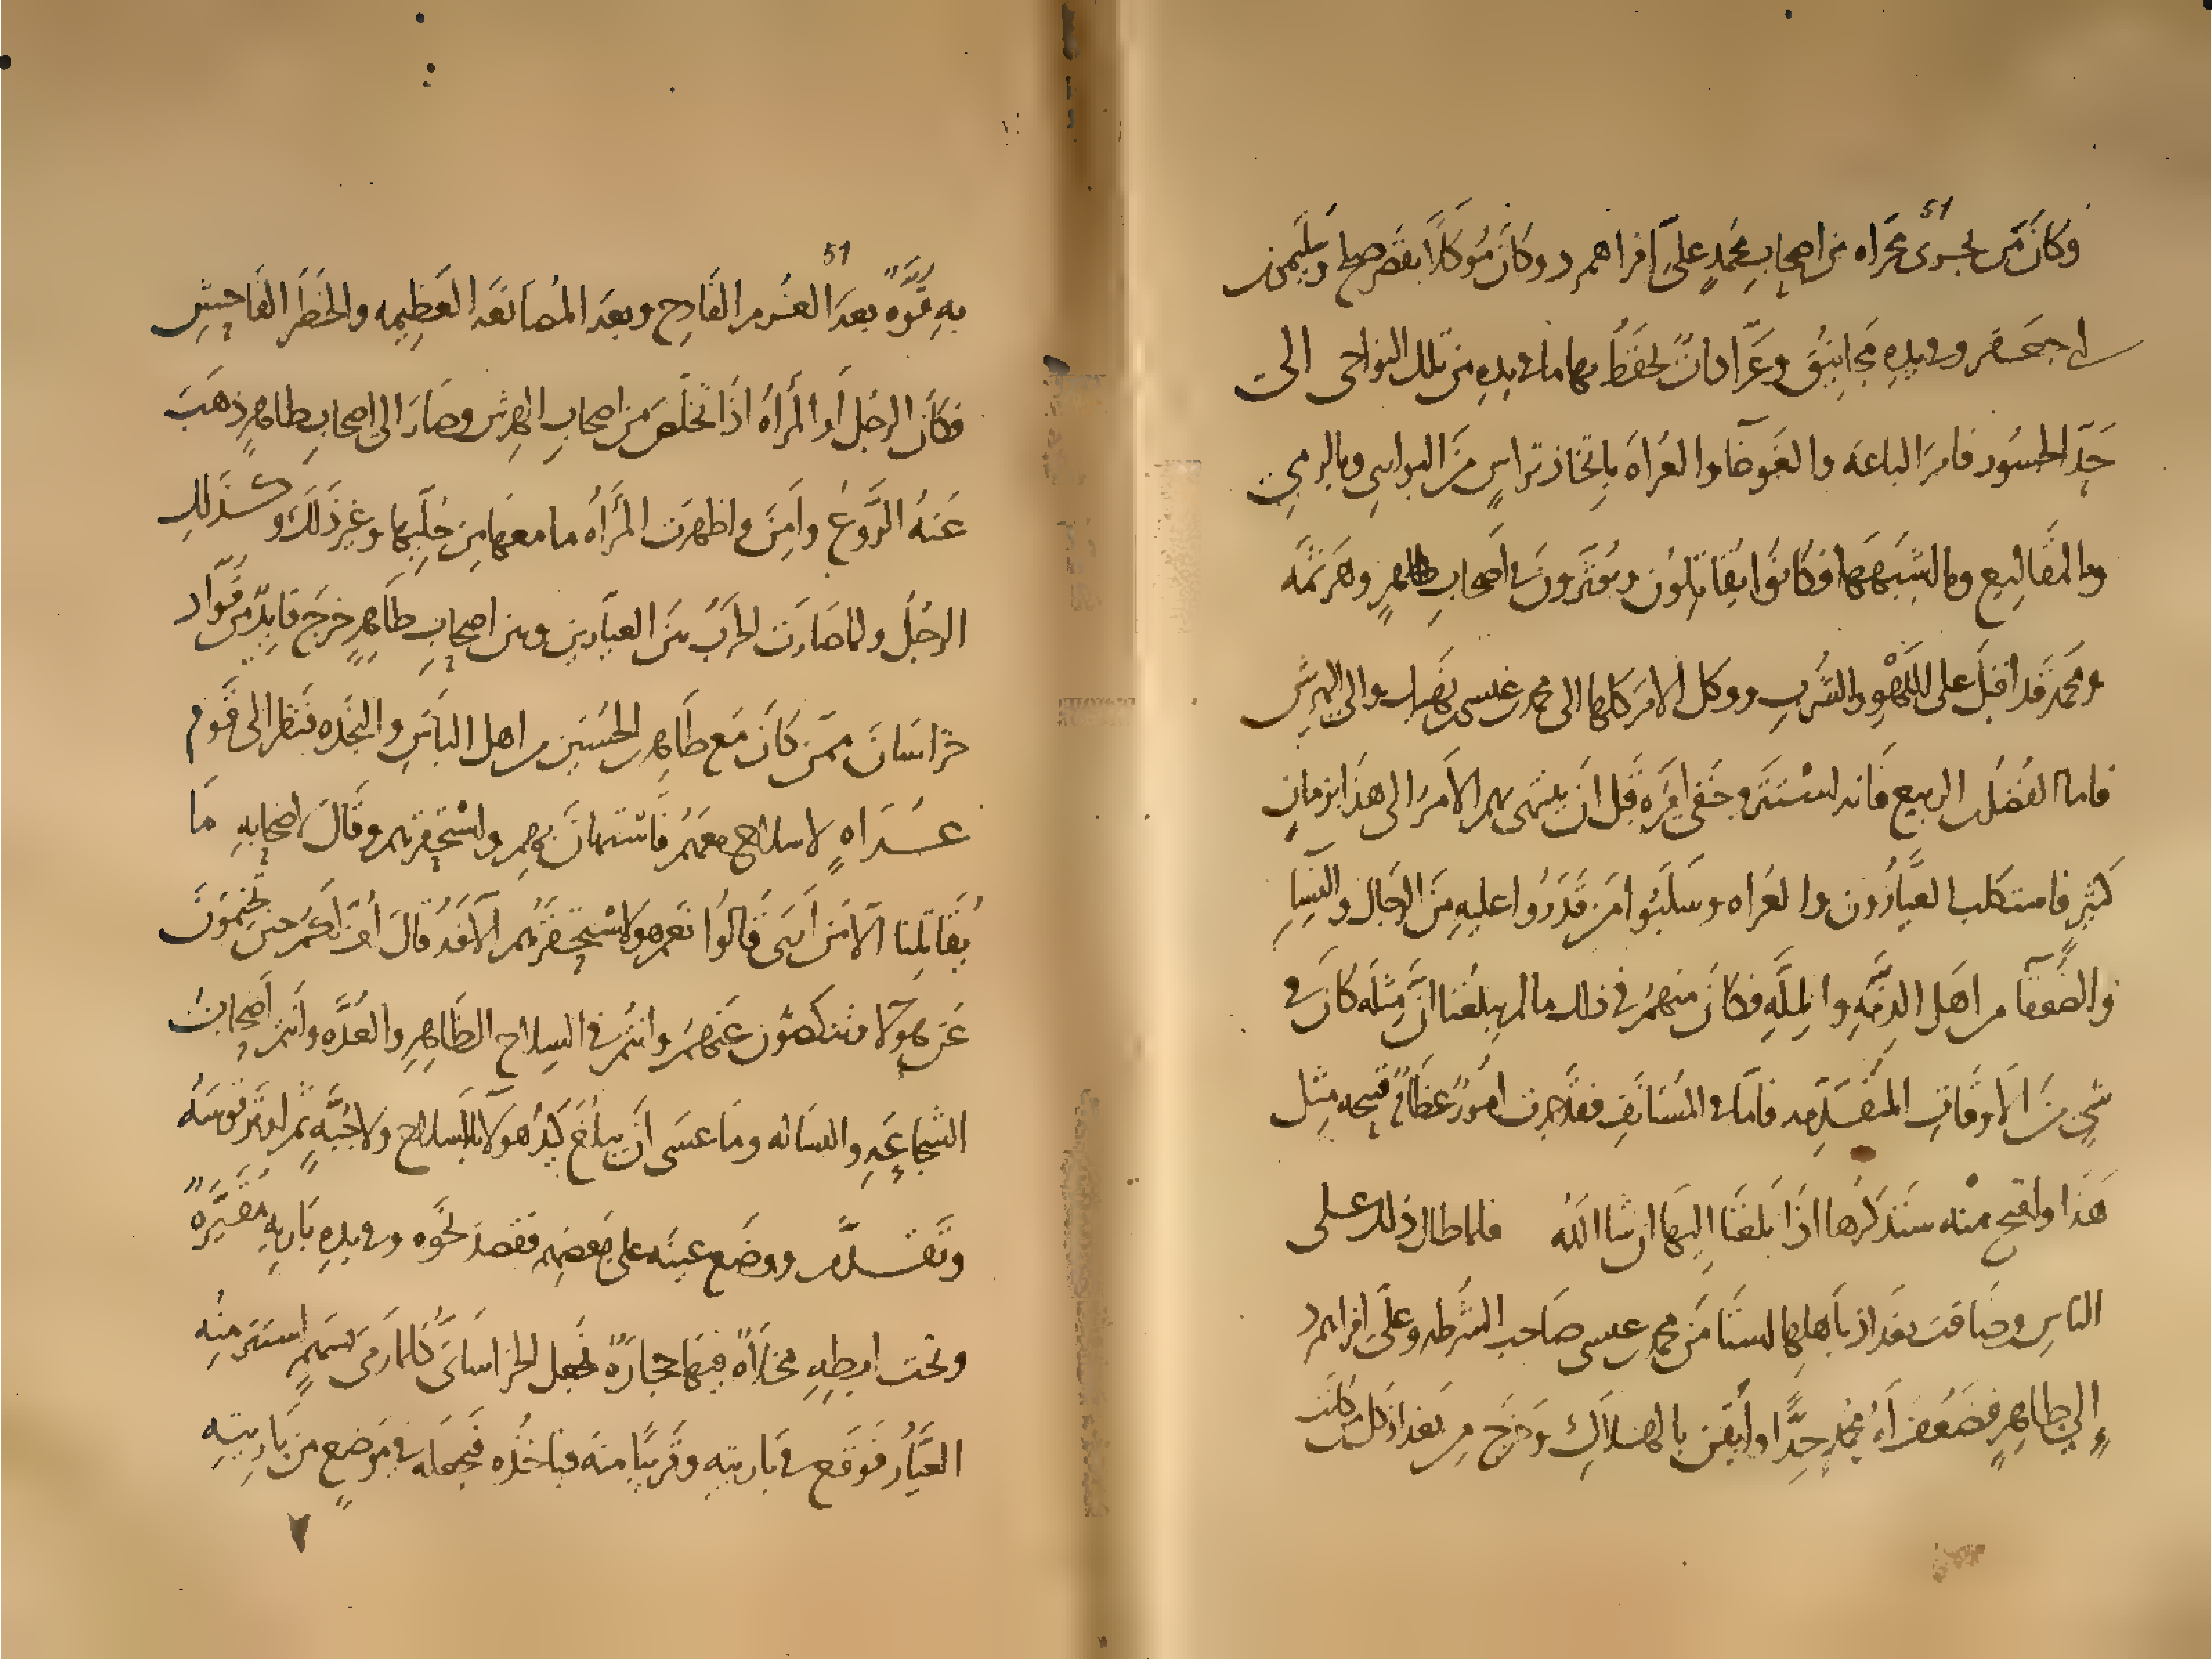 51
وكان ممن يجرى مجراه من اصحاب محمد على افراهمرد وكان موكلا بقصر صالح وسليمن بن
ابى جعفر وفى يده مجانيق وعرادات يحفظ بها ما فى يده من تلك النواحى الى
حد الجسور فامر الباعه والغوغا والعراه باتخاذ تراس من البوارى وبالرمى
وبالمقاليع وما اشبهها فكانوا يقاتلون ويوثرون فى اصحاب طاهر وهرثمه
ومحمد قد اقبل على اللهو والشرب ووكل الامر كلها الى محمد بن عيسى بن نهيك والى الهرش
فاما الفضل بن الربيع فانه استتر وخفى امره قبل ان ينتهى بهم الامر الى هذا بزمان
كثير فاستكلب العيارون والعراه وسلبوا من قدروا عليه من الرجال والنسا
والضعفا من اهل الذمه والمله فكان منهم فى ذلك ما لم يبلغنا ان مثله كان فى
شى من الاوقات المتقدمه فاما فى المستانف فقد جرت امور عظام قبيحه مثل
هذا واقبح منه سنذكرها اذا بلغنا اليها ان شا الله فلما طال ذلك على
الناس وضاقت بغداذ باهلها استامن محمد بن عيسى صاحب الشرطه وعلى افراهمرد
الى طاهر فضعف امر محمد جدا وايقن بالهلاك وخرج من بغداذ كل من كانت
51
به قوه بعد الغرم الفادح وبعد المصانعه العظيمه والخطر الفاحش
فكان الرجل او المراه اذا تخلص من اصحاب الهرش وصار الى اصحاب طاهر ذهب
عنه الروع وامن واظهرت المراه ما معها من حليها وغير ذلك وكذلك
الرجل ولما صارت الحرب بين العيارين وبين اصحاب طاهر خرج قايد من قواد
خراسان ممن كان مع طاهر بن الحسين من اهل الباس والنجده فنظر الى قوم
عراه لا سلاح معهم فاستهان بهم واستحقرهم وقال لاصحابه ما
يقاتلنا الا من ارى قالوا نعم هولا استحقرتهم الافه قال اف لكم حين تخيمون
عن هولا وتنكصون عنهم وانتم فى السلاح الظاهر والعده وانتم اصحاب
الشجاعه والبساله وما عسى ان يبلغ كيد هولا بلا سلاح ولا جبه ثم اوتر قوسه
وتقدم ووضع عينه على بعضهم فقصد نحوه وفى يده باريه مقيره
وتحت ابطه مخلاه فيها حجاره فجعل الخراسانى كلما رمى بسهم استتر منه
العيار فوقع فى باريته وقريبا منه فياخذه فيجعله فى موضع من باريته